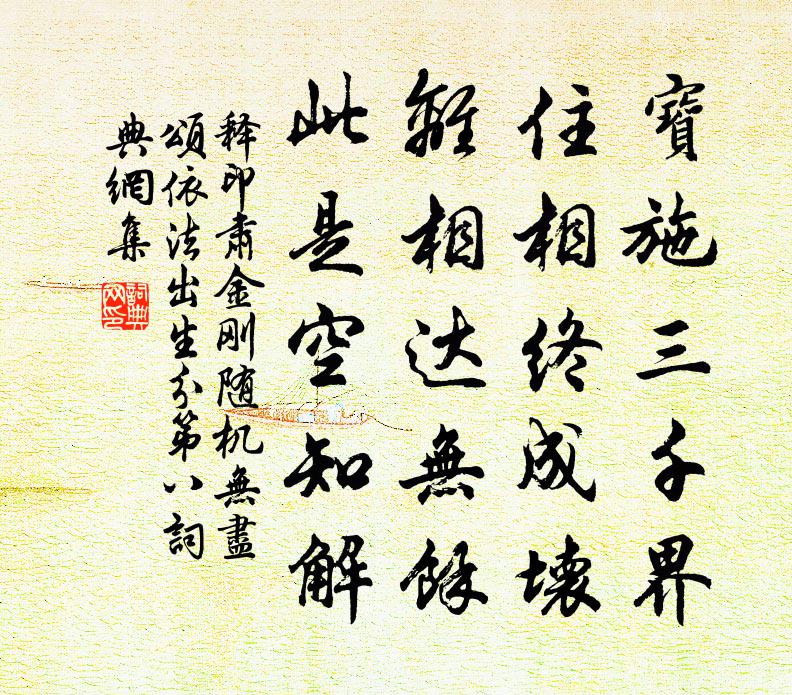 寶施三千界
住相終成壞
離相达無餘
此是空知解
释印肃金刚随机無盡
頌依法出生分第八詞
典網集
詞典网印